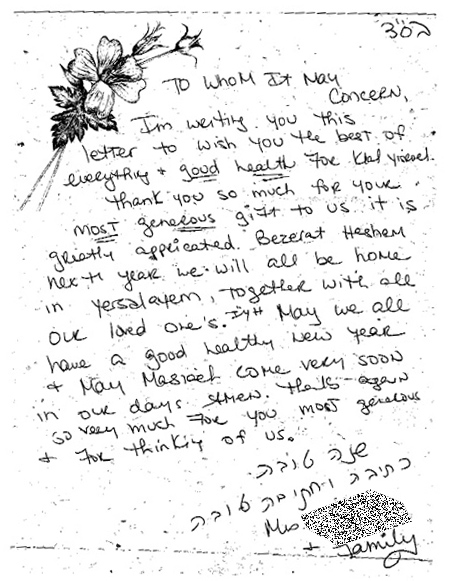 בס"ד
To Whom It May
Concern,
I'm writing you this
letter to wish you the best of
everything + good health For Klal Yisroel.
Thank you so much for your
most generous gift to us it is
greatly appricated. Bezerat Hashem
next year we will all be home
in Yersalayem, together with all
our loved one's. IYH May we all
have a good healthy New year
+ May Mosiach come very soon
in our days Amen. Thanks again
so very much For you most generous
+ For thinking of us.
שנה טובה
כתיבה וחתימה טובה
Mrs
+ Family